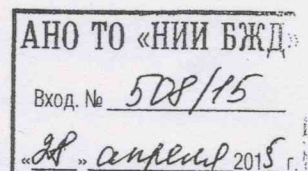 АНО ТО «НИИ БЖД»
Вход. № 508/15
«28» апреля 2015 г.